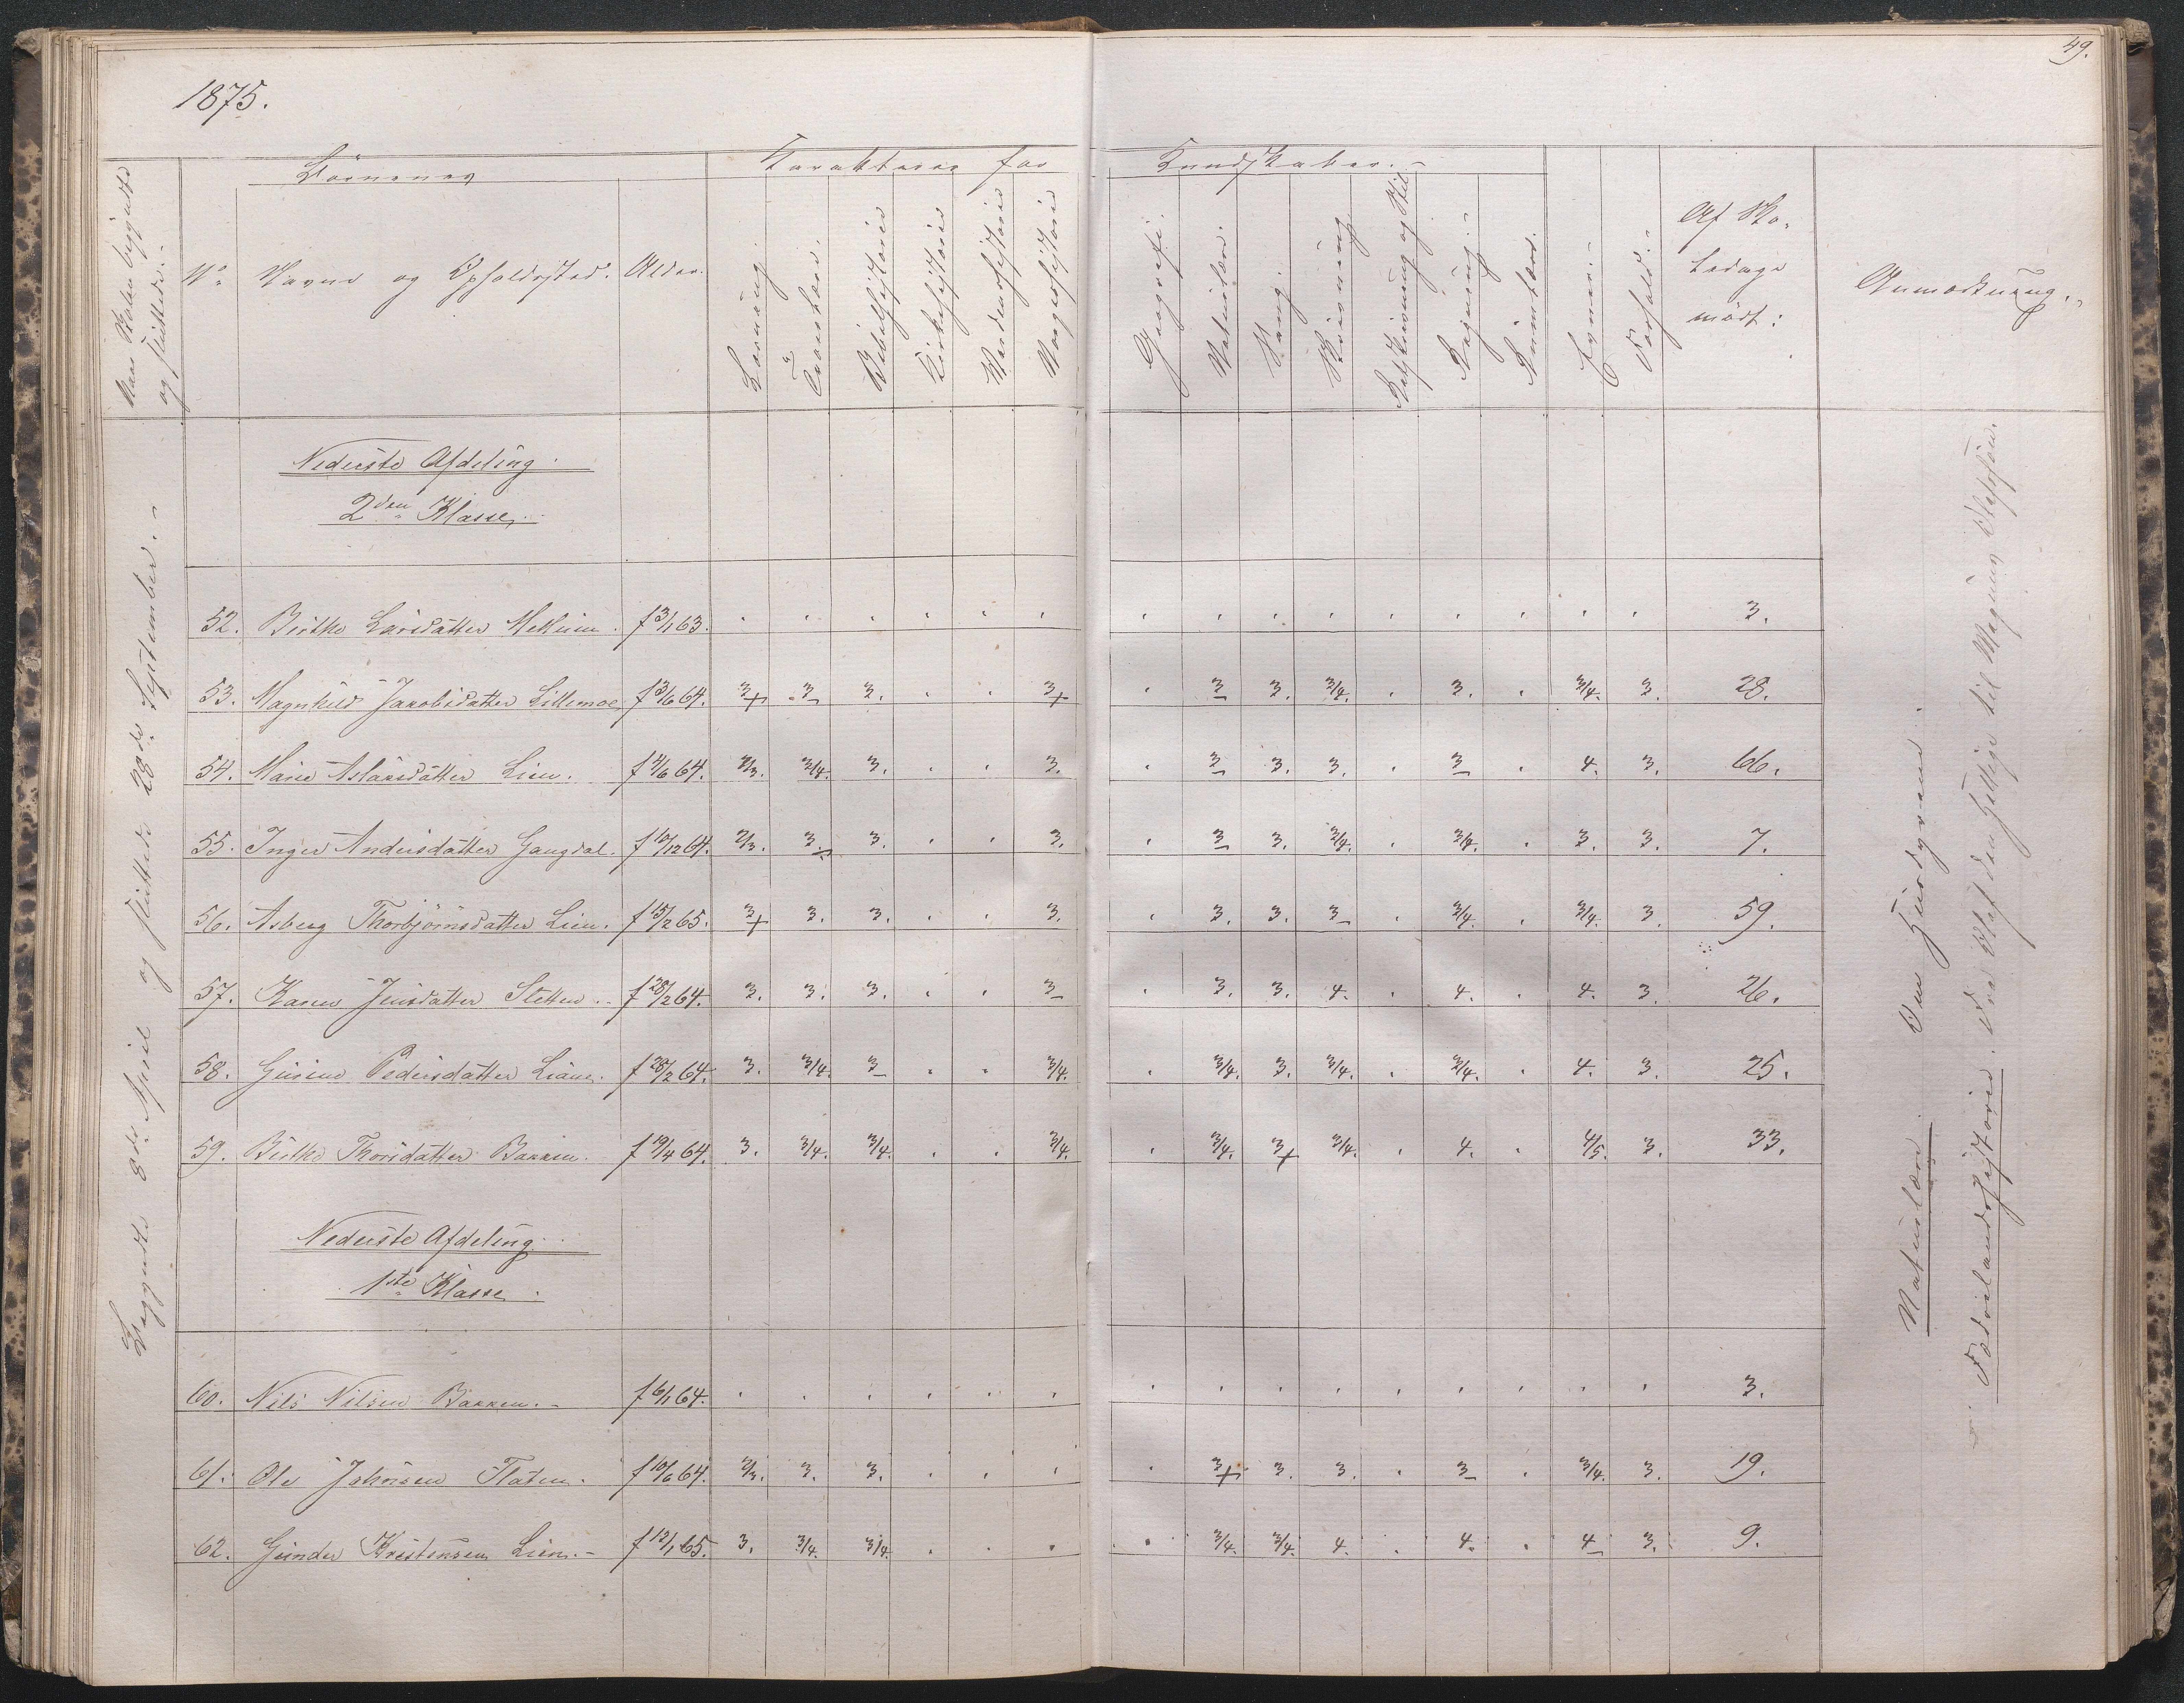 49.
1875.
Naar Skolen begyndte
og sluttede.
Börnenes
Karakterer for
Kundskaber.-
N°
Navne og Opholdssted.
Alder.
Læsning
Troeslære.
Bibelhistorie
Kirkehistorie
Verdenshistorie
Norgeshistorie
Geografi.
Naturlære.
Sang
Skrivning
Retskrivning og Stil
Regning.-
Evner.-
Forhold.-
Af Sko-
ledage
mødt:
Anmærkning.
Begyndte 8de April og sluttede 28de September.-
Nederste Afdeling.
2den Klasse.
52. Birthe Larsdatter f 3/1 63. 3.
53. Magnhild Jakobsdatter Lillemoe f 3/6 64. 3+ 3 3. 3+ 3 3. 3/4. 3. 3/4. 3. 28.
54. Marie Aslaksdatter Lien. 2/3. 3/4. 3. 3. 3 3. 3. 3 4. 3. 66.
55. Inger Andersdatter Gangdal. f 10/12 64. 2/3. 3 3. 3. 3 3. 3/4. 3/4. 3. 3. 7.
56. Asberg Thorbjörnsdatter Lien. f 15/2 65. 3+ 3. 3. 3. 3. 3. 3 3/4. 3/4. 3. 59.
57. Karen Jensdatter Sletten. f 28/2 64. 3. 3. 3. 3 3. 3. 4. 4. 4. 3. 26.
58. Pedersdatter f 28/2 64. 3. 3/4. 3 3/4. 3/4. 3. 3/4. 3/4. 4. 3. 25.
59. Birthe Thorsdatter Bakken. f 19/4 64. 3. 3/4. 3/4. 3/4. 3/4. 3+ 3/4. 4. 4/5. 3. 33.
Nederste Afdeling.
1ste Klasse.
60. Nils Nilsen Bakken.- f 6/1 64. 3.
61. Ole Johnsen Flaten. f 10/6 64. 2/3. 3. 3. 3+ 3. 3. 3 3/4. 3. 19.
62. Gunder Kristensen Lien.- f 12/1 65. 3. 3/4. 3/4. 3/4. 3/4. 4. 4. 4 3. 9.
Naturlære. Om Husdyrene.
Fædrelandshistorie. Fra Olaf den Hellige til Magnus Olafsön.